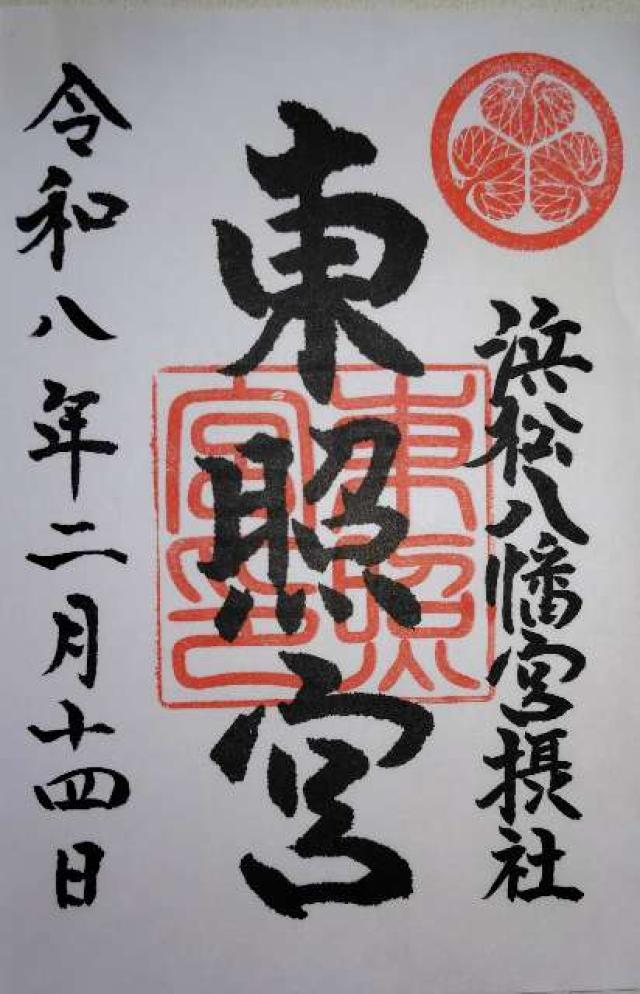 浜松八幡宮摂社
東照宮
東照宮印
令和八年二月十四日